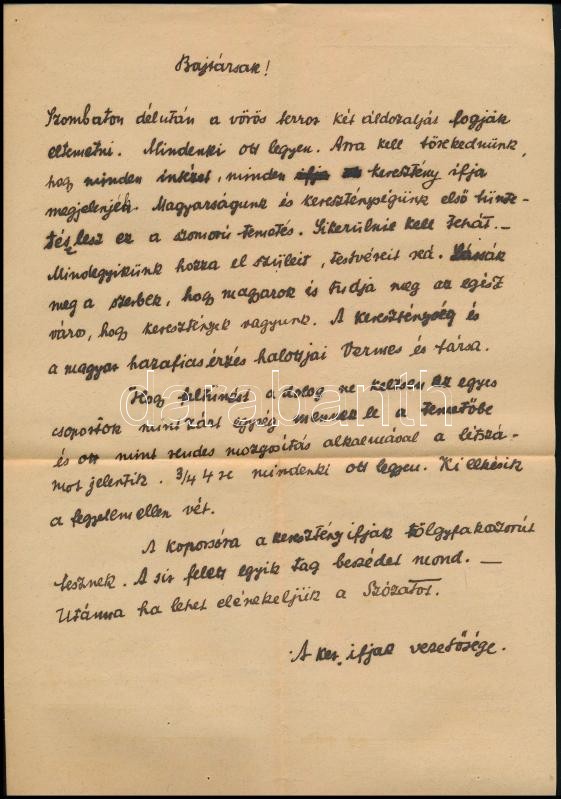 Bajtársak!
Szombaton délután a vörös terror két áldozatját fogják
eltemetni. Mindenki ott legyen. Arra kell törekednünk,
hogy minden intézet, minden keresztény ifja
megjelenjék. Magyarságunk és kereszténységünk első tünte-
tés lesz ez a szomorú temetés. Sikerülnie kell tehát. —
Mindegyikünk hozza el szüleit, testvéreit rá. Lássák
meg a szerbek, hogy magyarok is tudja meg az egész
város, hogy keresztények vagyunk. A kereszténység és
a magyar hazafias érzés halottjai Vermes és társa.
Hogy feltünést a dolog ne keltsen az egyes
csoportok mint zárt egység menjen le a temetőbe
és ott mint rendes mozgósítás alkalmásal a létszá-
mot jelentik. 3/4 4 re mindenki ott legyen. Ki elkésik
a fegyelem ellen vét.
A koporsóra a keresztény ifjak tölgyfakoszorút
tesznek. A sir felett egyik tag beszédet mond. —
Utánna ha lehet elénekeljük a Szózatot.
A ker. ifjak vezetősége.
darabanth